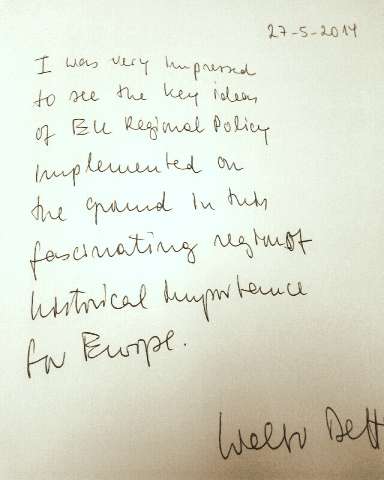 27-5-2014
I was very impressed
to see the key ideas
of EU Regional Policy
implemented on
the ground in this
fascinating region of
historical importance
for Europe.